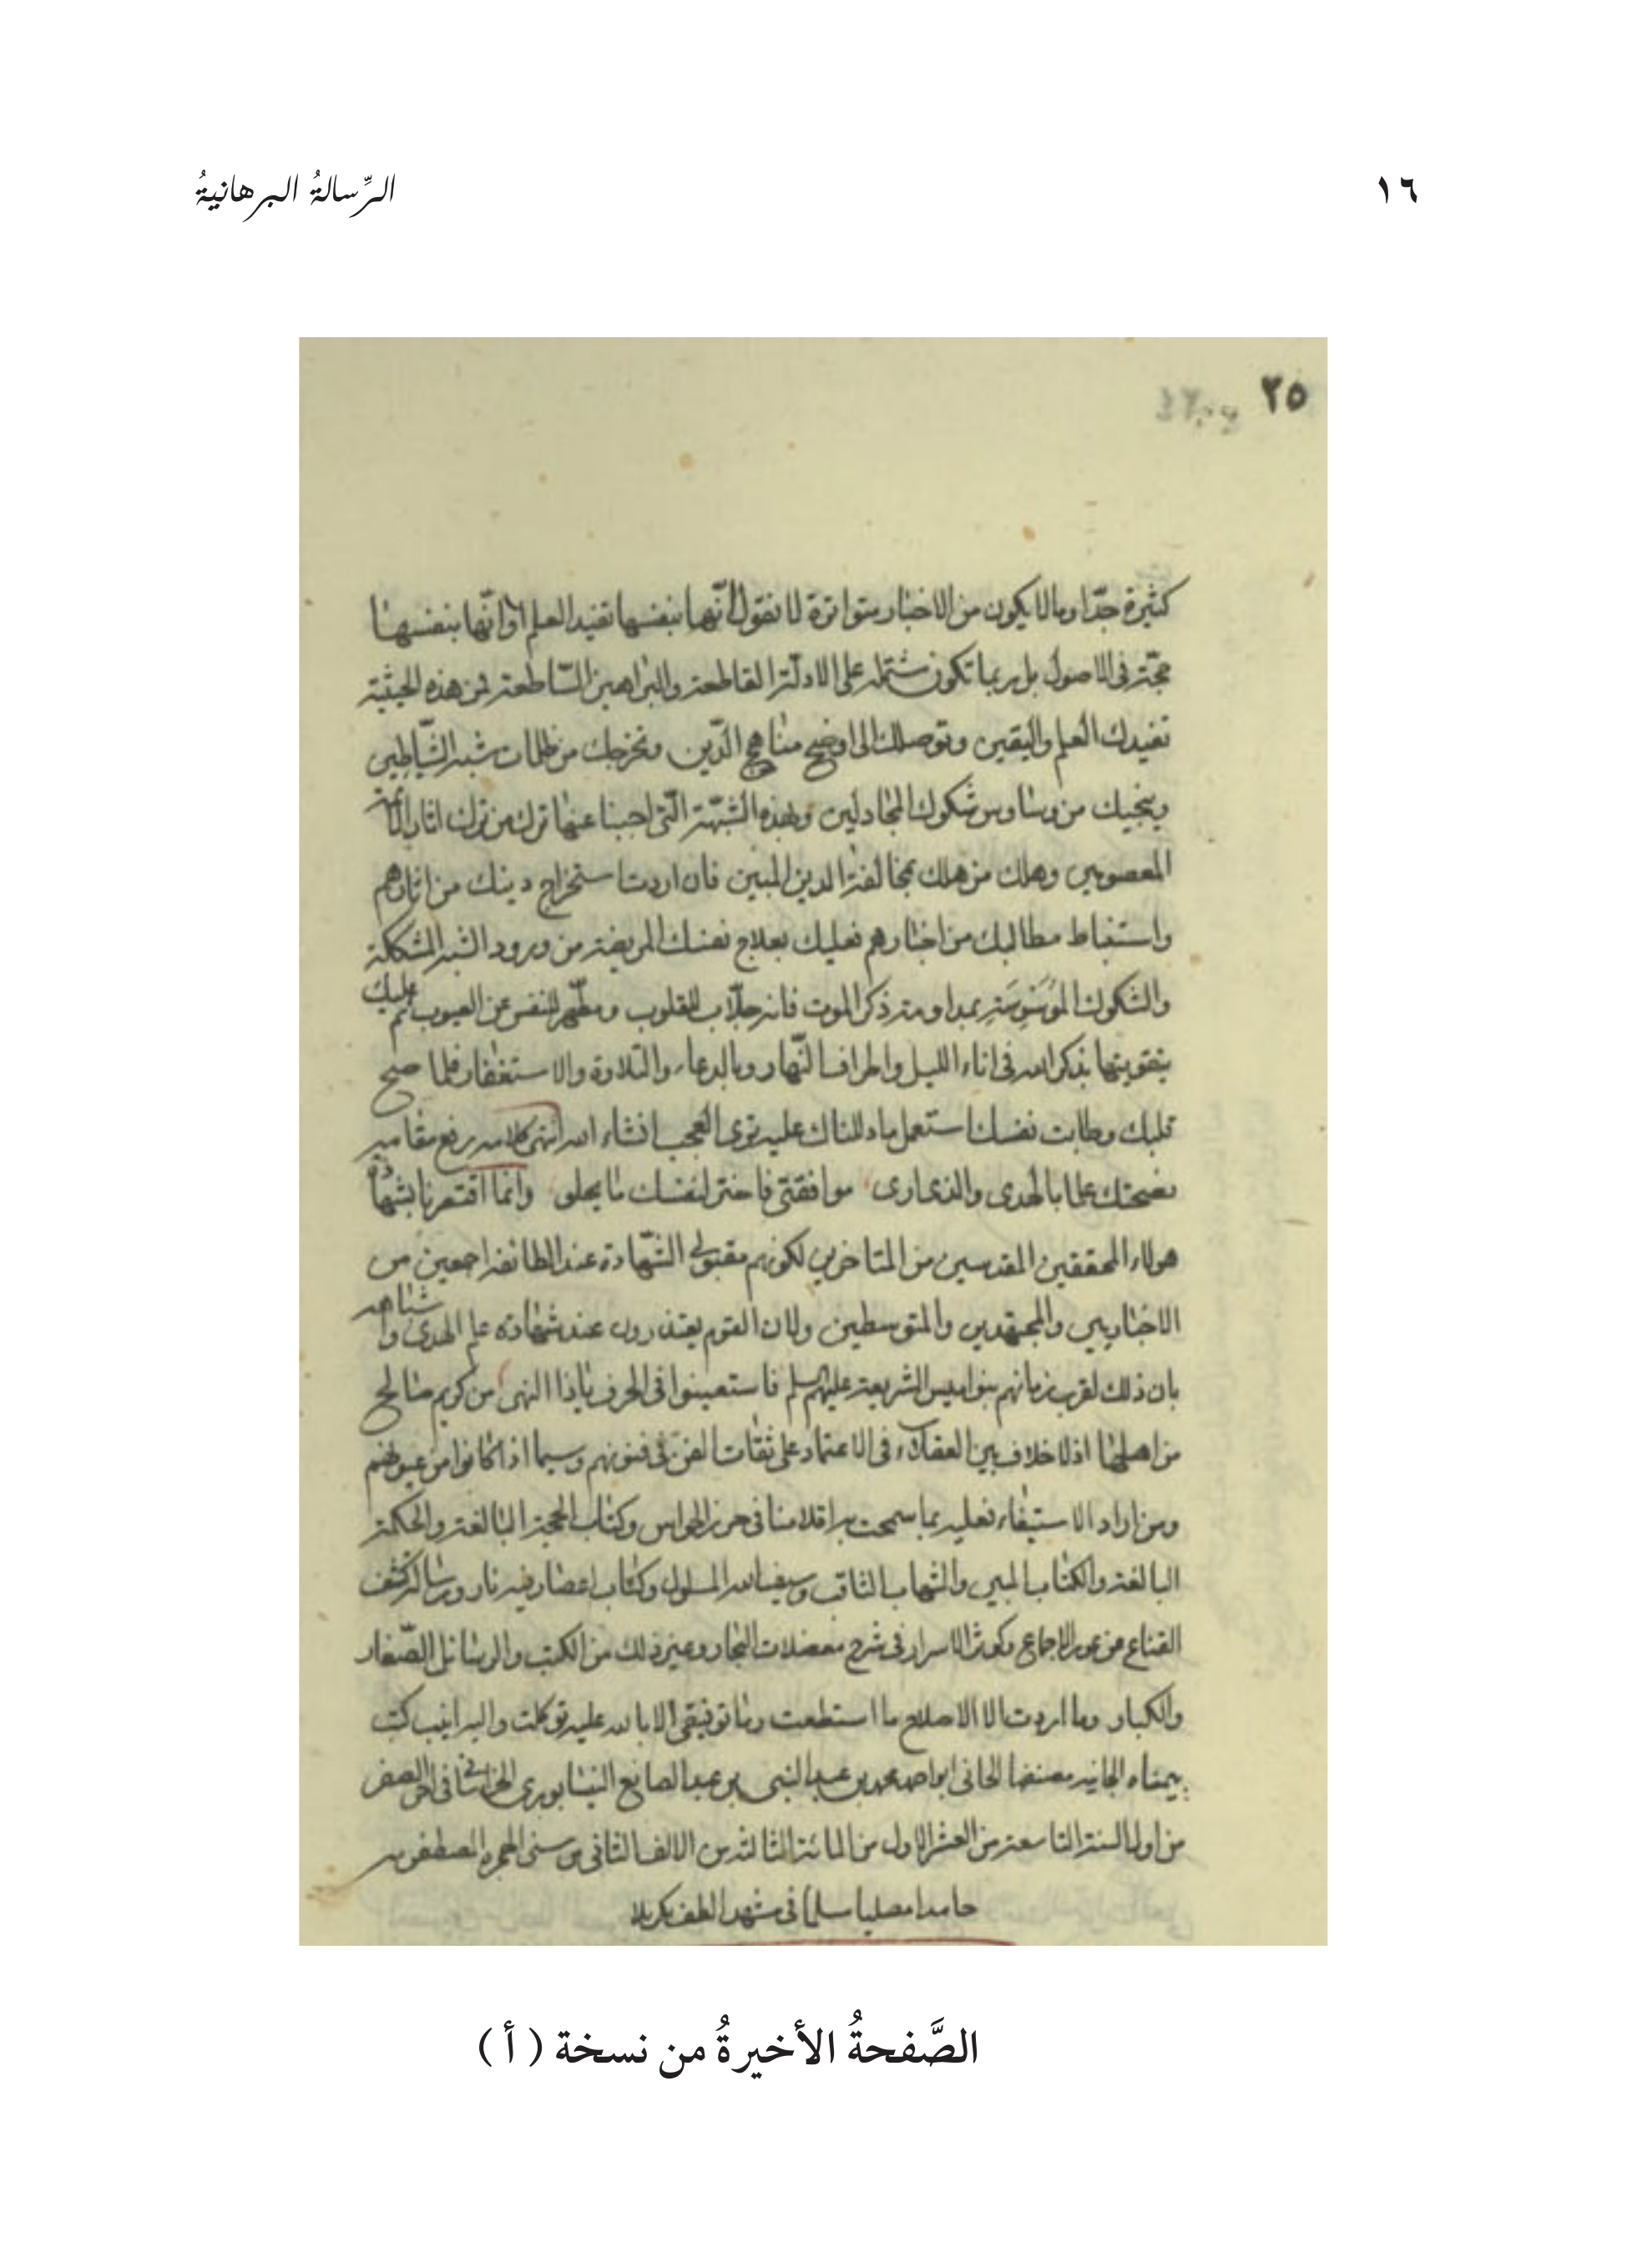 ١٦
الرِّسالةُ البرهانيةُ
٢٥
كثيرة جدّا وما لا يكون من الاخبار متواترة لا نقول انّها بنفسها تفيد العلم او انّها بنفسها
حجّة فى الاصول بل ربما تكون مشتملة على الادلّة القاطعة والبراهين السّاطعة فمن هذه الحيثية
تفيدك العلم واليقين وتوصلك الى اوضح مناهج الدّين وتخرجك من ظلمات شبه الشّياطين
وينجيك من وساوس شكوك المجادلين وبهذه الشّبهة الّتى اجبنا عنها ترك من ترك اثار الائمة
المعصومين وهلك من هلك بمخالفة الدين المبين فان اردت استخراج دينك من اثارهم
واستنباط مطالبك من اخبارهم فعليك بعلاج نفسك المريضة من ورود الشبه المشكلة
والشكوك الموسوسة بمداومة ذكر الموت فانه جلّاب للقلوب ومطهّر للنفس عن العيوب ثم عليك
بتقويتها بذكر الله فى اناء الليل واطراف النّهار وبالدعاء والتلاوة والاستغفار فلما صح
قلبك وطابت نفسك استعمل ما دللناك عليه ترى العجب انشاء الله انتهى كلامه رفع مقامه
نصحتك علما بالهدى والذى ارى موافقتى فاختر لنفسك ما يحلو وانما اقتصرنا بشهادة
هولاء المحققين المقدسين من المتاخرين لكونهم مقبولى الشّهادة عند الطائفة اجمعين من
الاخباريين والمجتهدين والمتوسطين ولان القوم يعتذرون عند شهادة علم الهدى واشباهه
بان ذلك لقرب زمانهم بنواميس الشريعة عليهم السلم فاستعينوا فى الحرف ياذا النهى من كريم صالح
من اهلها اذ لا خلاف بين العقلاء فى الاعتماد على ثقات الفن فى فنونهم وسيما اذا كانوا من عيونهم
ومن اراد الاستيفاء فعليه بما سمحت به اقلامنا فى حرز الحواس وكتاب الحجة البالغة والحكمة
البالغة والكتاب المبين والشهاب الثاقب وسيف الله المسلول وكتاب اعصار فيه نار ورسالة كشف
القناع عن عور الاجماع وكوثر الاسرار فى شرح معضلات البحار وغير ذلك من الكتب والرسائل الصّغار
والكبار وما اردت الا الاصلاح ما استطعت وما توفيقى الا بالله عليه توكلت واليه انيب كتب
بيمناه الجانيه مصنفها الجانى ابو احمد محمد بن عبد النبى بن عبد الصانع النيسابورى الخراسانى فى اخر الصفر
من اول السنة التاسعة من العشر الاول من المائة الثالثة من الالف الثانى من سنى الهجرة المصطفويه
حامدا مصليا مسلما فى مشهد الطف بكربلا
الصَّفحةُ الأخيرةُ من نسخة ( أ )